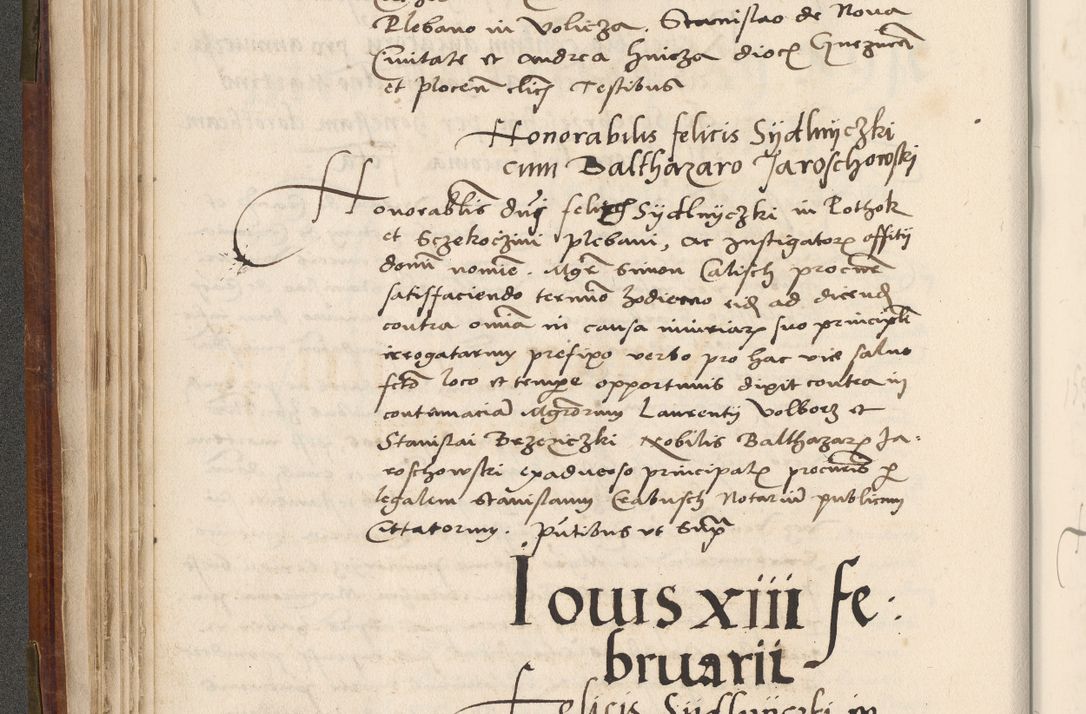 Plebano in Volicza, Stanislao de Nova
Civitate et Andrea Hnicza dioc Gneznen
et Plocen clic Testibus
Honorabilis felicis Sydlnyczki
cum Balthazaro Jaroschowski
Honorablis dni felicis Sydlnyczki in Pothok
et Sczekoczini plebani, ac Instigator offitii
domi nomine. Mgr Simon Calisch procur
satisfaciendo termino hodierno eid ad dicend
contra omia in causa iniuriar suo principali
irrogatarum prefixo verbo pro hac vice salvo
fcto loco et tempore opportunis dixit contra in
contumaciam Mgrorum Laurentii Volborz et
Stanislai Brzeniczki Nobilis Balthazar Ja-
roschowski exadverso principal procuris p
legalem Stanislaum Crabusch Notarium publicum
Cittatorum. Pntibus ut Supra
Iovis xiii fe:
bruarii
Felicis Sydlnyczki in